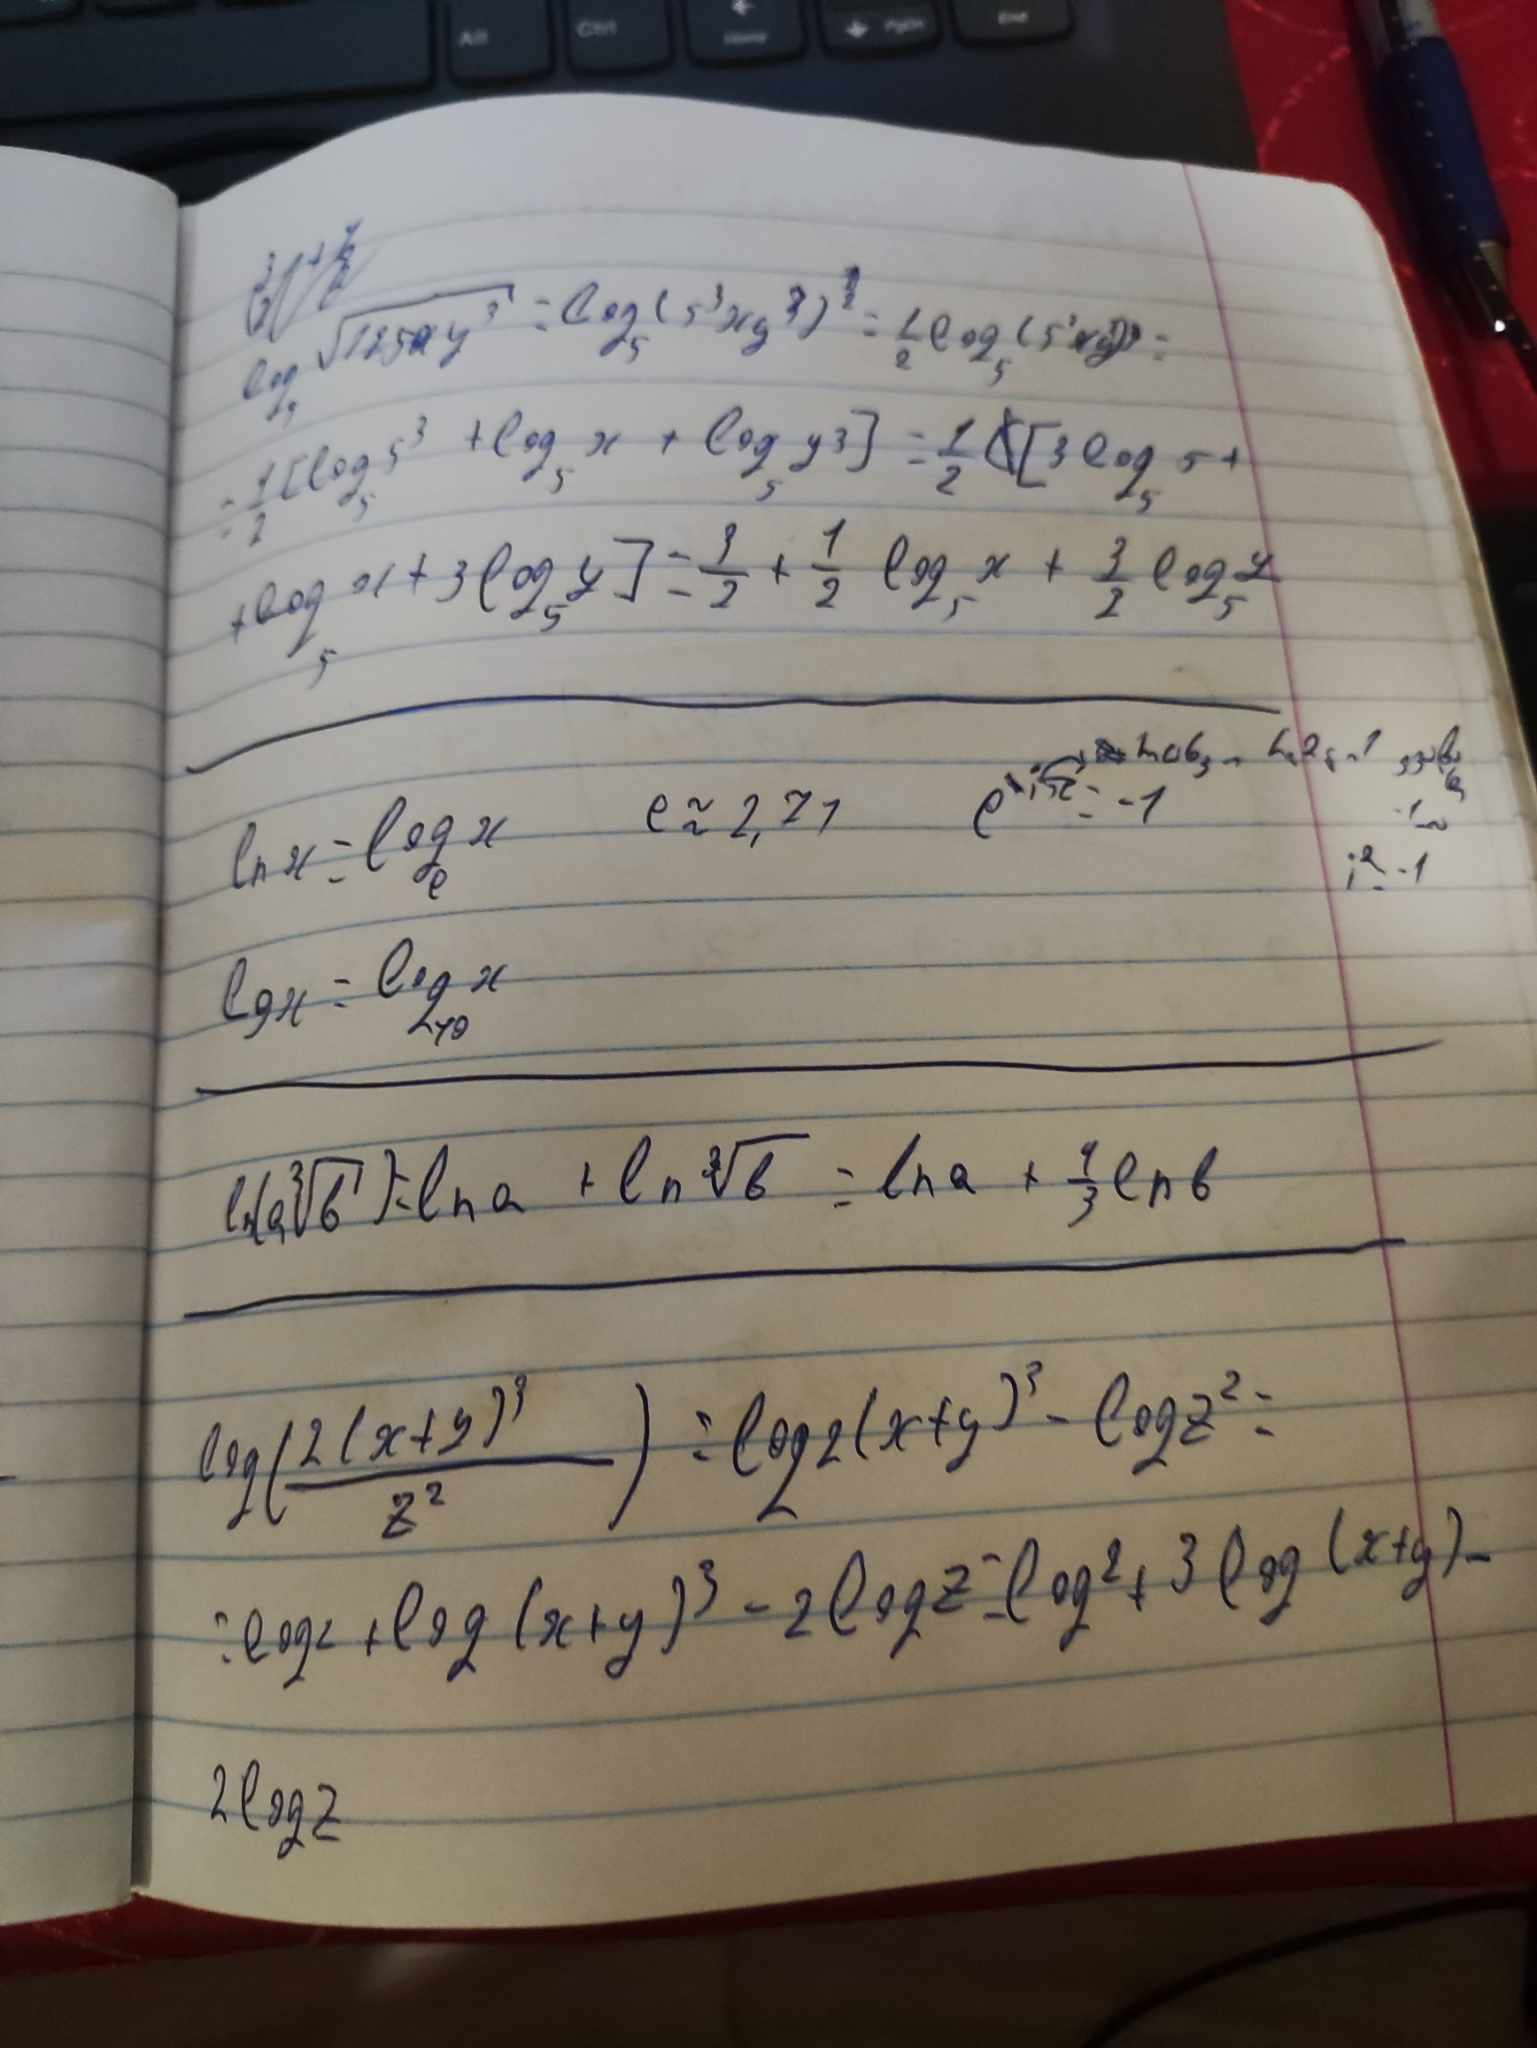 Alt Ctrl Home PgDn End
log₅ √125xy³ = log₅(5³xy³)^½ = ½ log₅(5³xy³) =
= ½[log₅5³ + log₅x + log₅y³] = ½[3log₅5 +
+ log₅x + 3log₅y] = 3/2 + 1/2 log₅x + 3/2 log₅y
ln x = logₑx e ≈ 2,71 e^(iπ) = -1
i² = -1
lg x = log₁₀x
ln(a∛b) = ln a + ln ∛b = ln a + 1/3 ln b
log(2(x+y)³/z²) = log 2(x+y)³ - log z² =
= log 2 + log (x+y)³ - 2 log z = log 2 + 3 log (x+y) -
2 log z